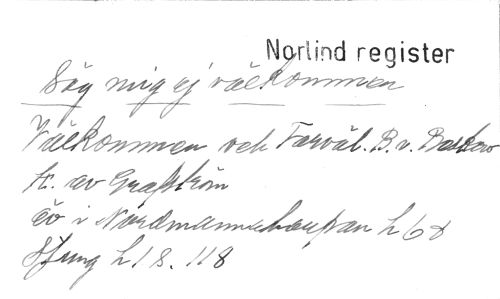 Norlind register
Säg mig ej välkommen
Välkommen och Farväl. B. v. Beskow
tr. av Grafström
öv i Nordmanna h 6
Sjung h 1 s. 118